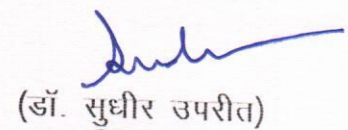 (डॉ. सुधीर उपरीत)